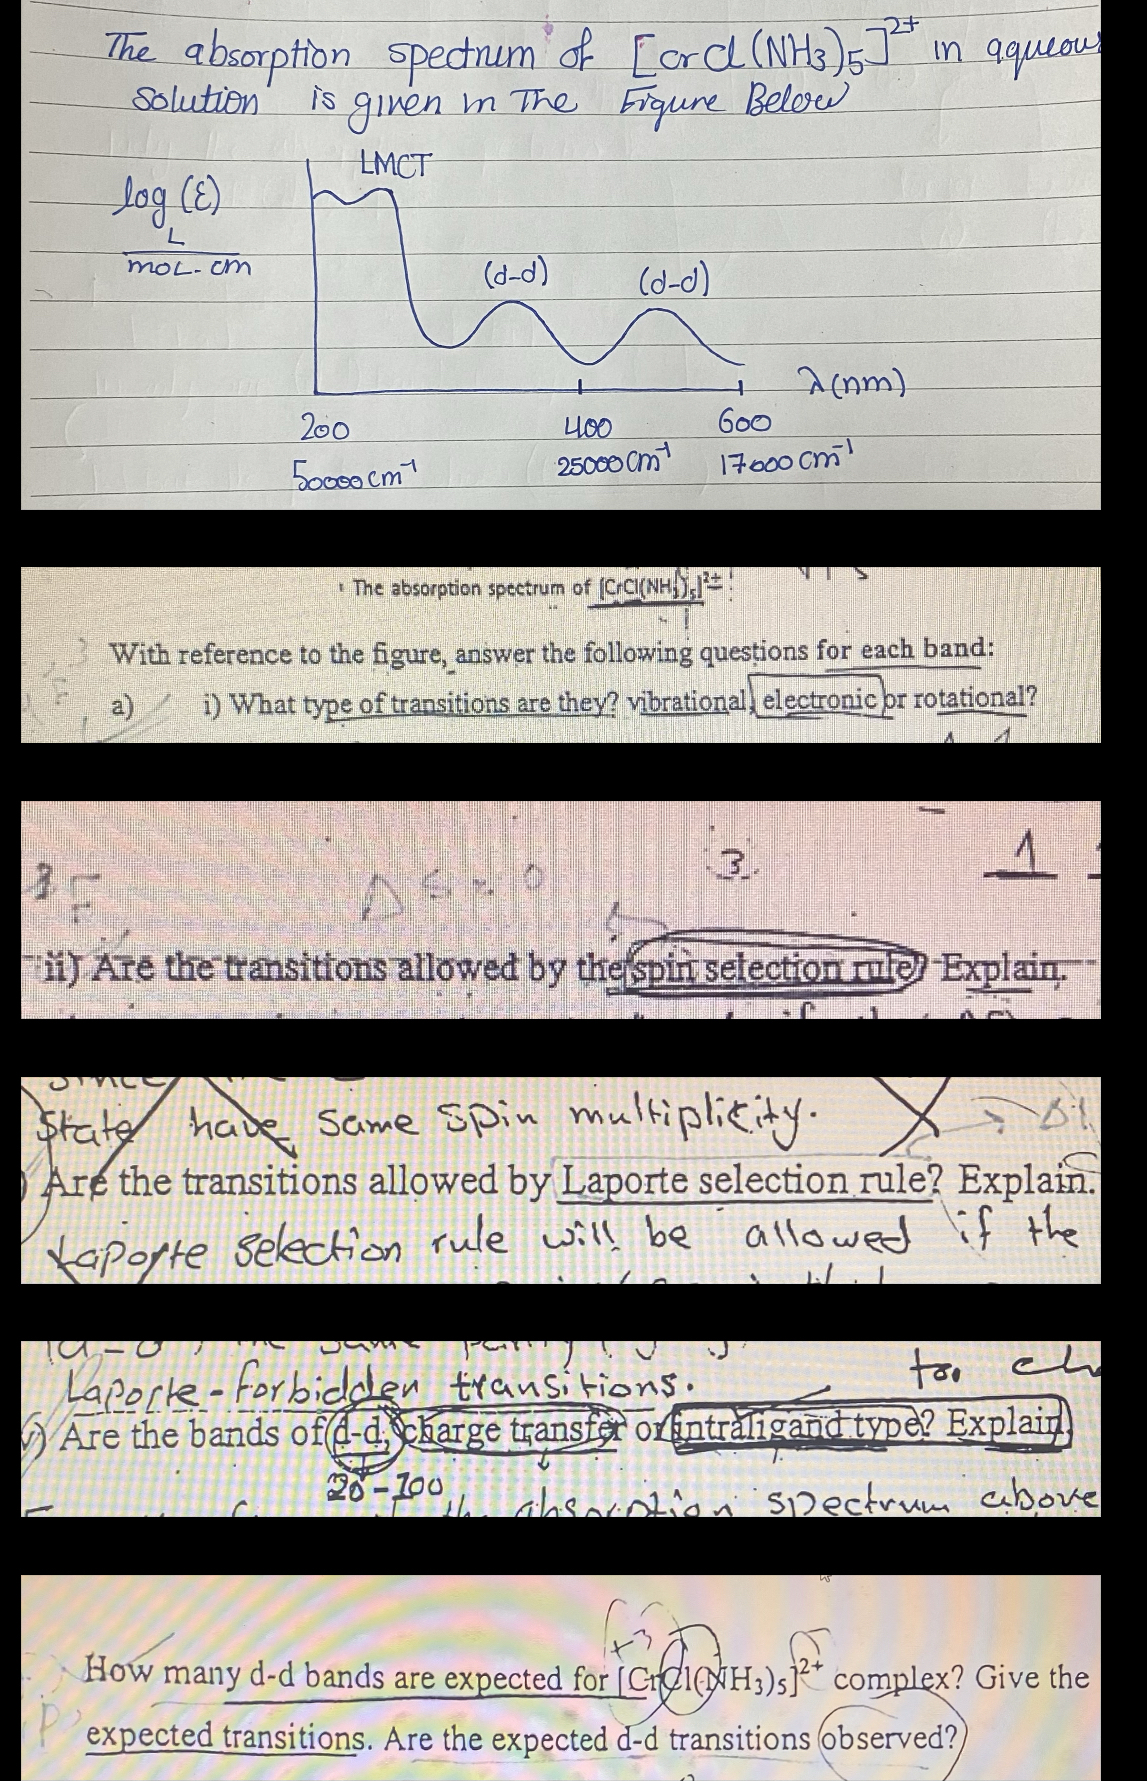 The absorption spectrum of [crcl(NH3)5]2+ in aqueous
solution is given in The Figure Below
LMCT
log (ε)
L
mol-cm
(d-d)
(d-d)
λ(nm)
200
400
600
50000 cm-1
25000 cm-1
17000 cm-1
The absorption spectrum of [CrCl(NH3)5]2+
With reference to the figure, answer the following questions for each band:
a) i) What type of transitions are they? vibrational, electronic or rotational?
3
1
3
F
ΔS = 0
ii) Are the transitions allowed by the spin selection rule? Explain.
since
State have same spin multiplicity.
Are the transitions allowed by Laporte selection rule? Explain.
Laporte selection rule will be allowed if the
Laporte-forbidden transitions.
Are the bands of d-d, charge transfer or intraligand type? Explain
20-100
the absorption spectrum above
+3
How many d-d bands are expected for [CrCl(NH3)5]2+ complex? Give the
expected transitions. Are the expected d-d transitions observed?